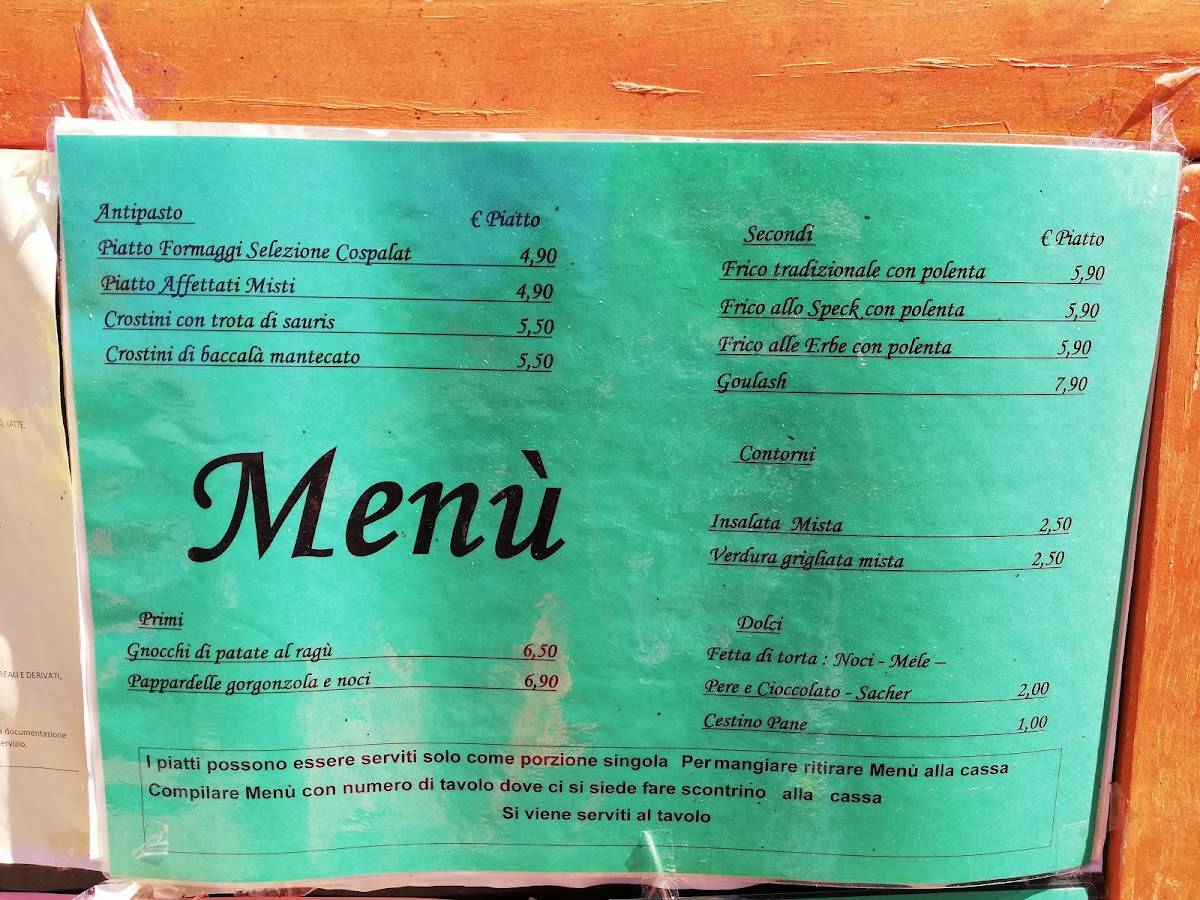 Antipasto € Piatto
Piatto Formaggi Selezione Cospalat 4,90
Piatto Affettati Misti 4,90
Crostini con trota di sauris 5,50
Crostini di baccalà mantecato 5,50
Menù
Primi
Gnocchi di patate al ragù 6,50
Pappardelle gorgonzola e noci 6,90
Secondi € Piatto
Frico tradizionale con polenta 5,90
Frico allo Speck con polenta 5,90
Frico alle Erbe con polenta 5,90
Goulash 7,90
Contorni
Insalata Mista 2,50
Verdura grigliata mista 2,50
Dolci
Fetta di torta : Noci - Mele –
Pere e Cioccolato - Sacher 2,00
Cestino Pane 1,00
I piatti possono essere serviti solo come porzione singola Per mangiare ritirare Menù alla cassa
Compilare Menù con numero di tavolo dove ci si siede fare scontrino alla cassa
Si viene serviti al tavolo
LATTE,
E DERIVATI,
a documentazione